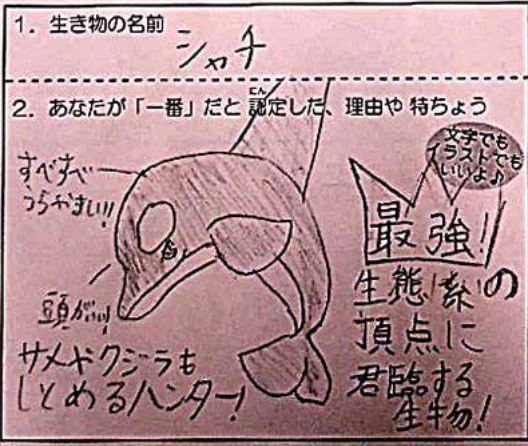 1. 生き物の名前
シャチ
2. あなたが「一番」だと認定した、理由や 特ちょう
にん
文字でも
イラストでも
いいよ♪
すべすべ
うらやましい!!
頭がいい!
最強!
生態系の
頂点に
君臨する
生物!
サメやクジラも
しとめるハンター!